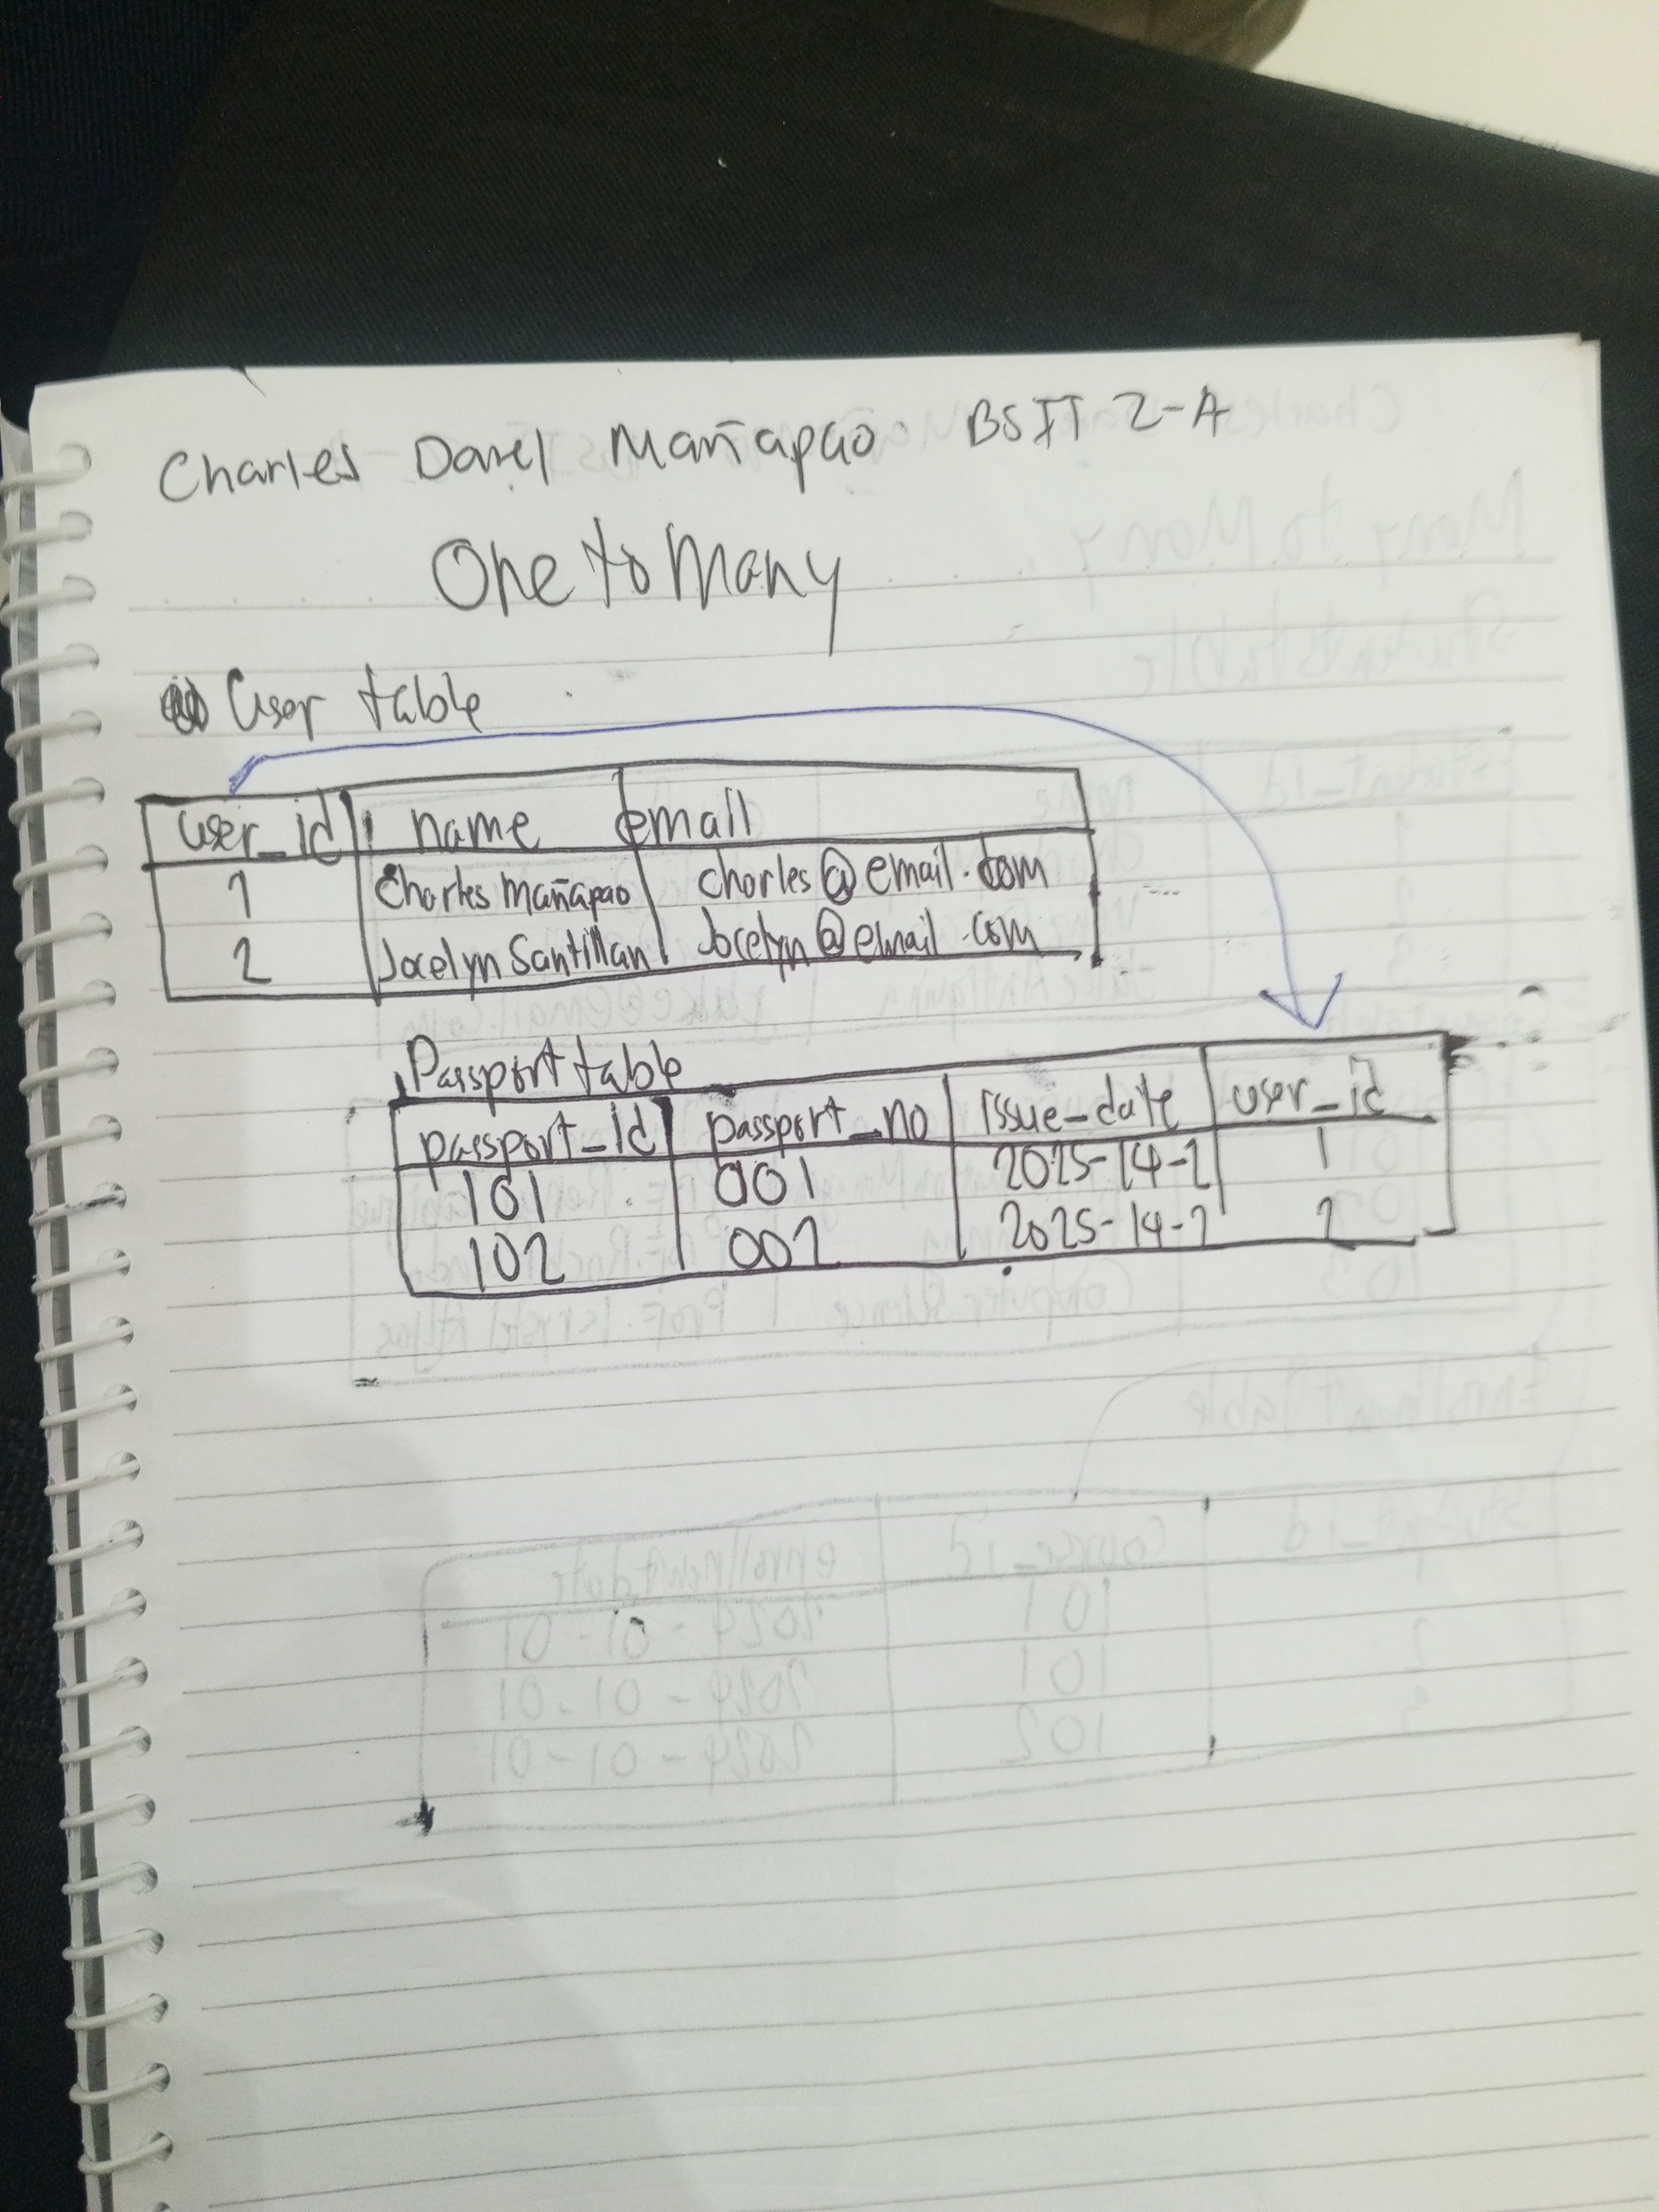 Charles Darel Mañapao BSIT 2-A
One to Many
User table
user_id name email
1 Charles Mañapao charles@email.com
2 Jocelyn Santillan Jocelyn@email.com
Passport table
passport_id passport_no issue_date user_id
101 001 2025-14-2 1
102 002 2025-14-2 2